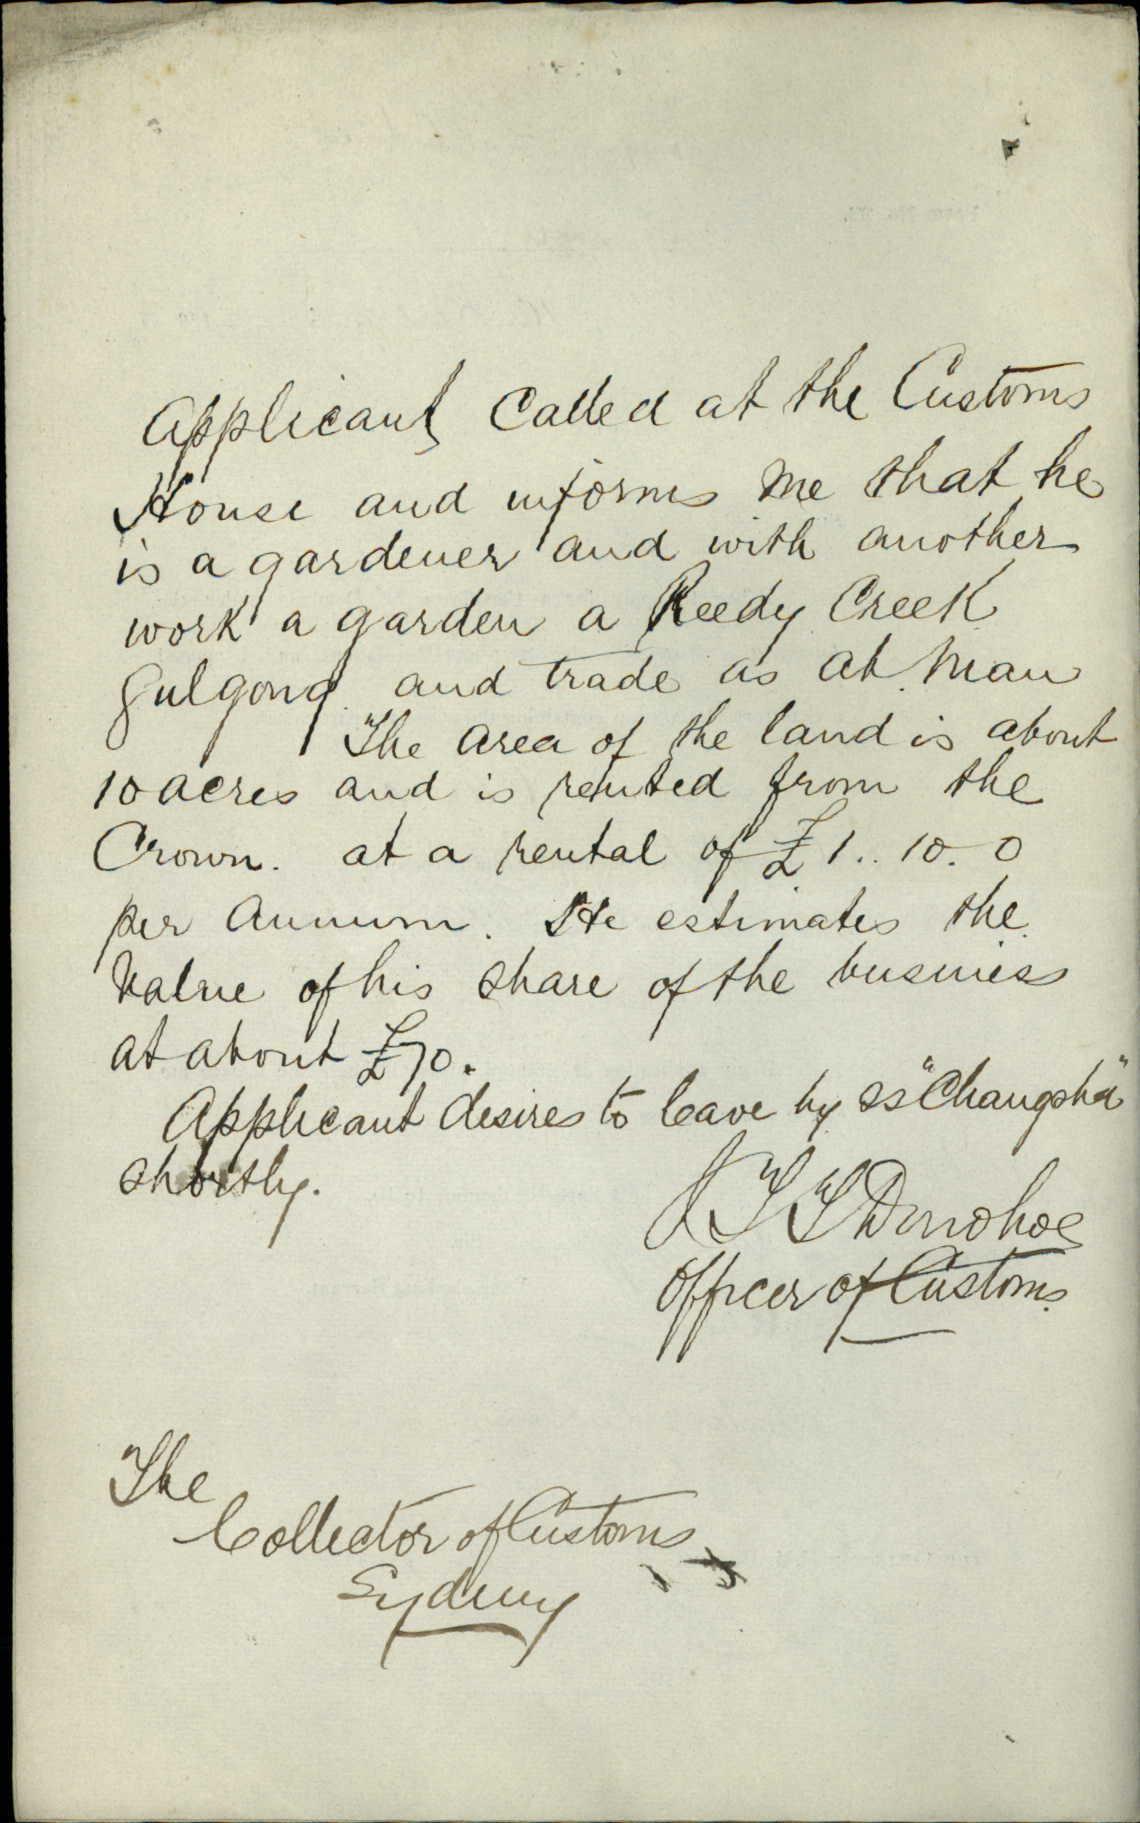 Applicant Called at the Customs
House and informs me that he
is a gardener and with another
work a garden a Reedy Creek
Gulgong and trade as Ah Man
The area of the land is about
10 acres and is rented from the
Crown. at a rental of £1..10.0
per Annum. He estimates the
value of his share of the business
at about £70.
Applicant desires to leave by ss "Changsha"
shortly.
J T T Donohoe
Officer of Customs.
The
Collector of Customs
Sydney